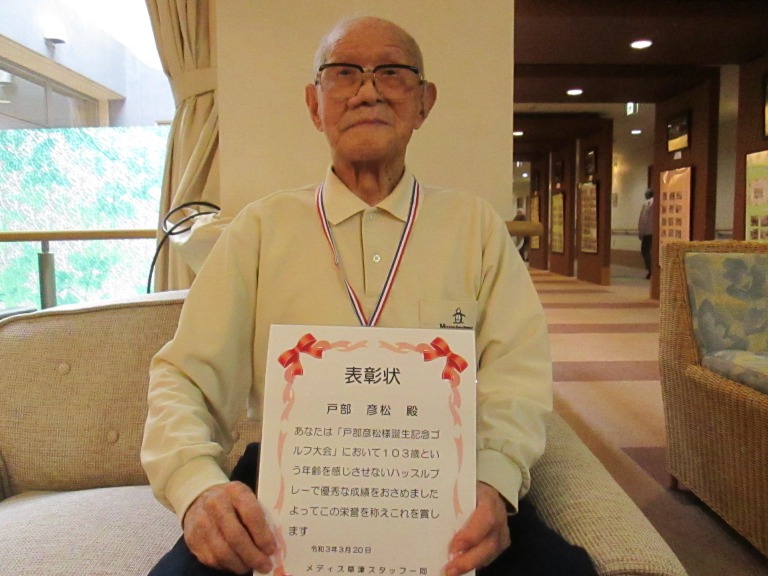 表彰状
戸部 彦松 殿
あなたは「戸部彦松様誕生記念ゴ
ルフ大会」において103歳とい
う年齢を感じさせないハッスルプ
レーで優秀な成績をおさめました
よってこの栄誉を称えこれを賞し
ます
令和3年3月20日
メディス草津スタッフ一同